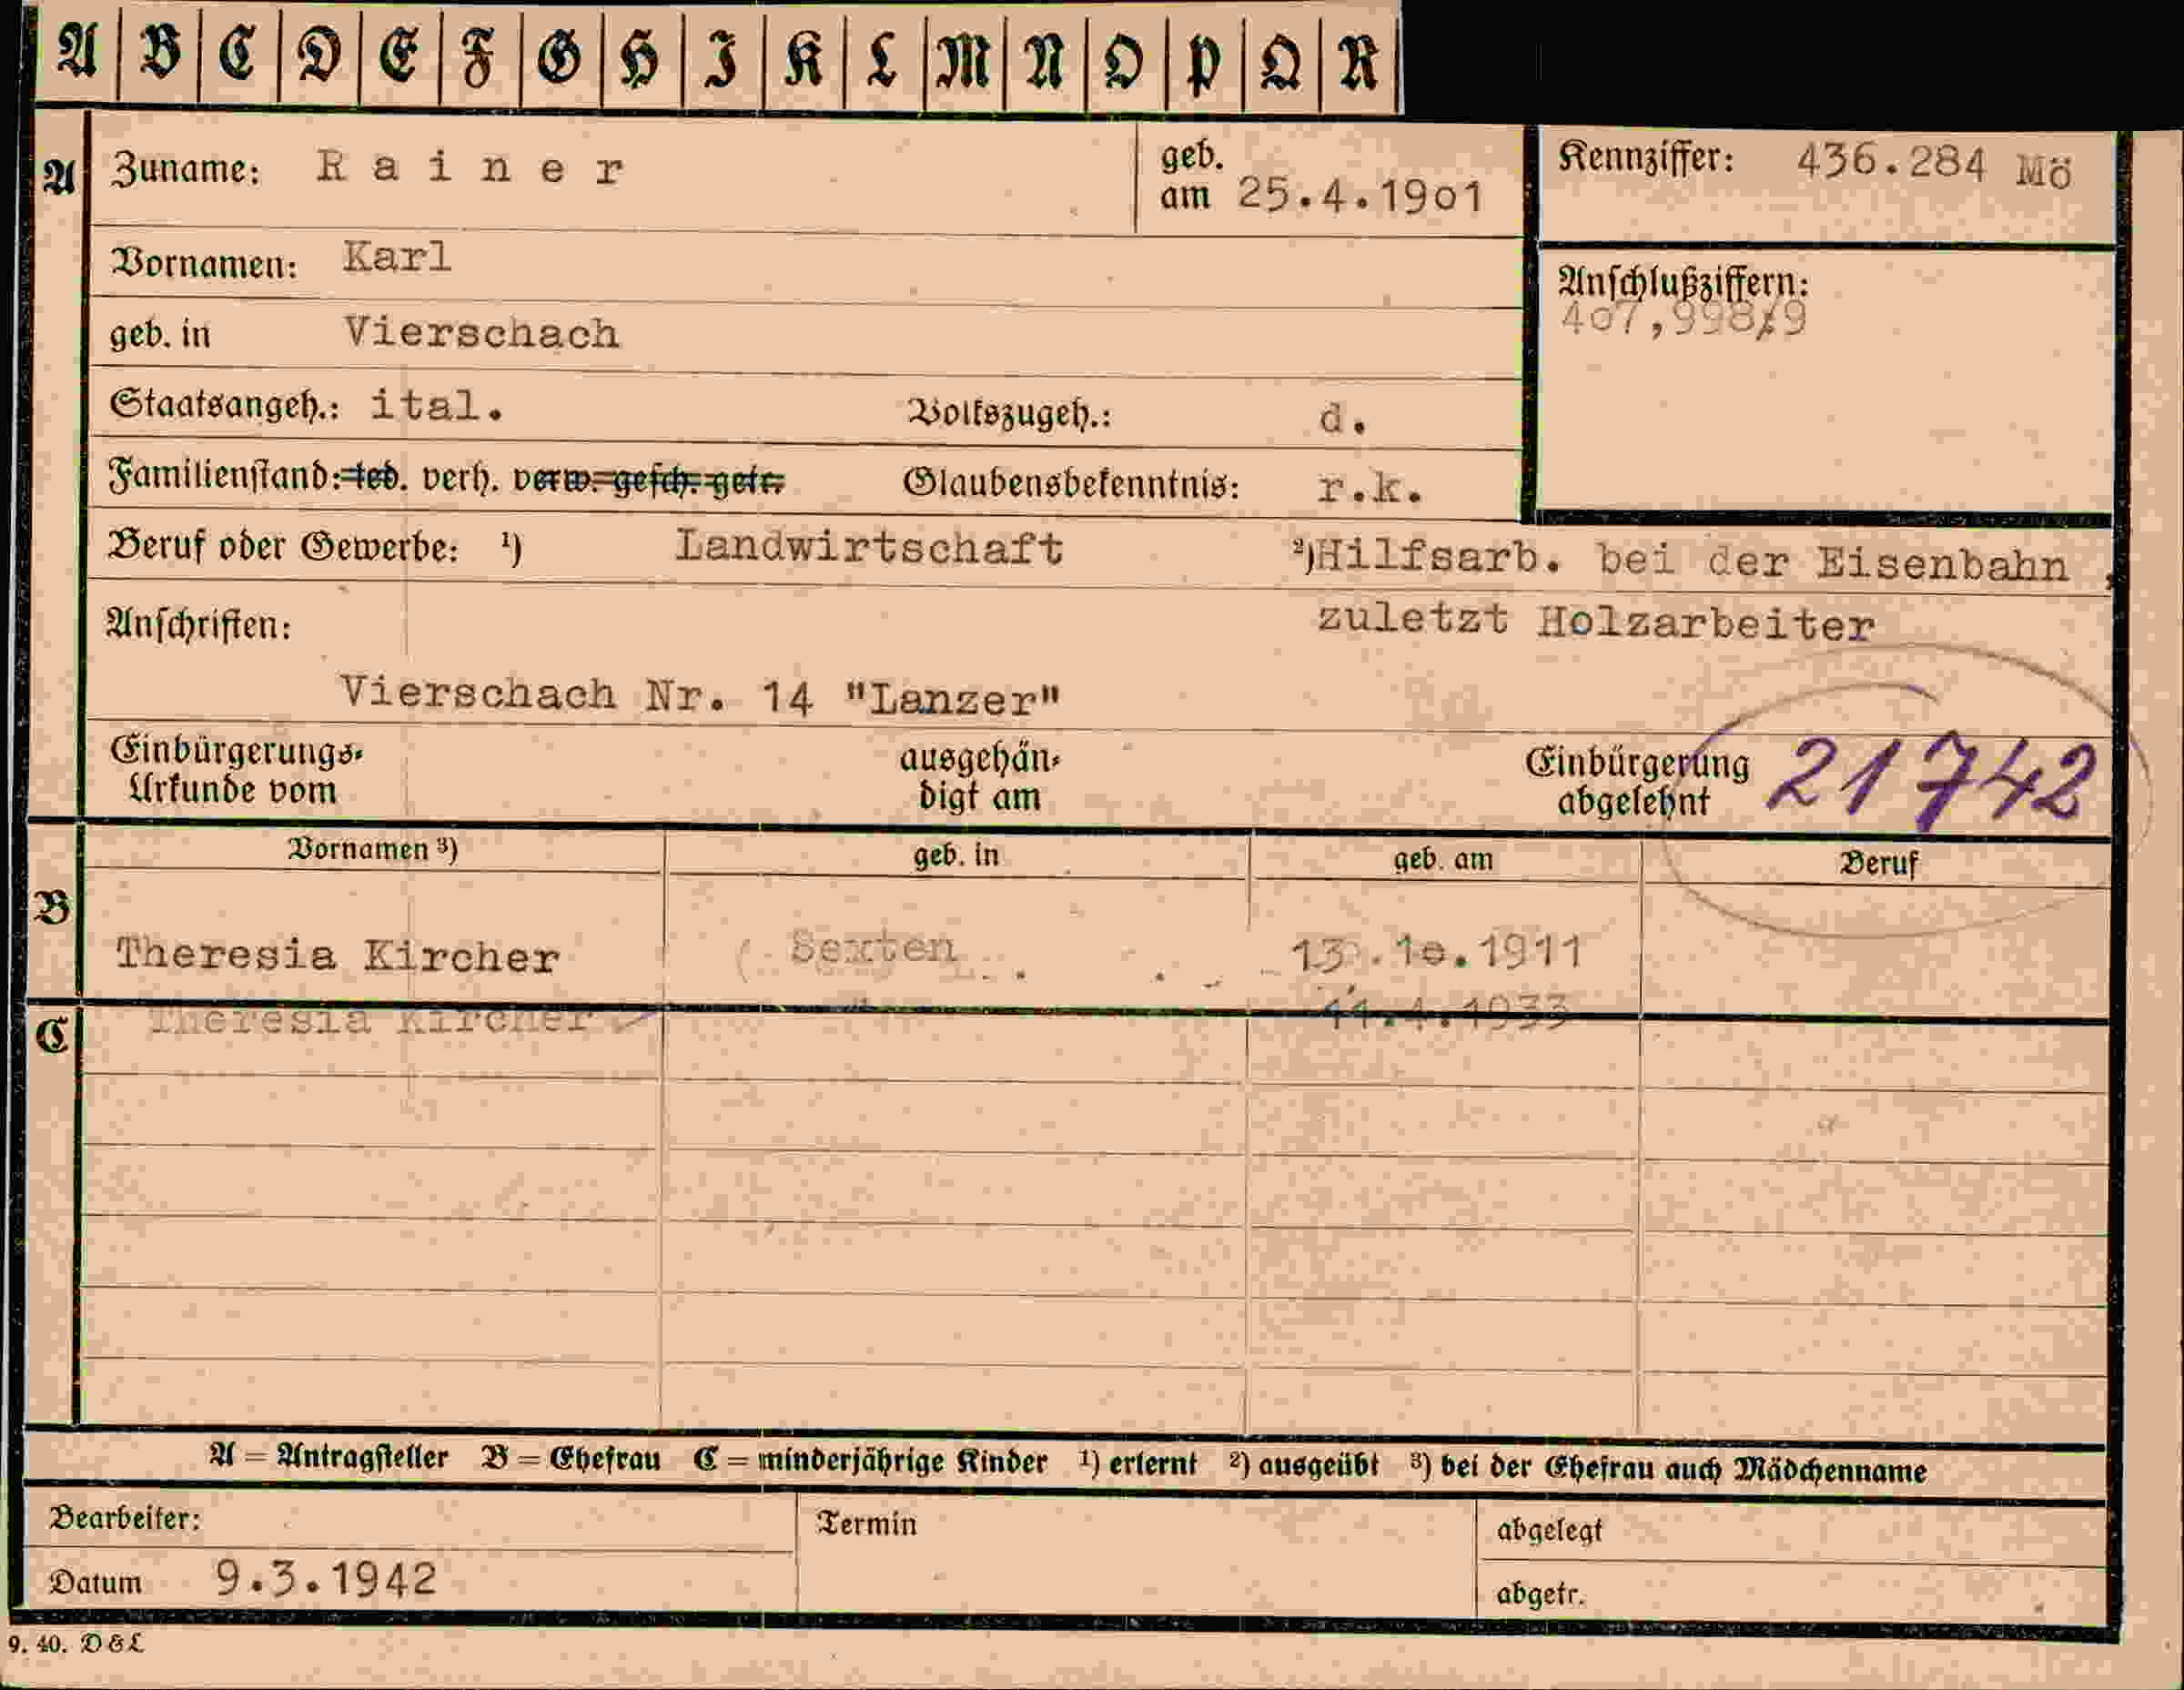 A B C D E F G H I K L M N O P Q R
A Zuname: Rainer geb. am 25.4.19o1 Kennziffer: 436.284 Mö
Vornamen: Karl
Anschlußziffern:
4o7,998/9
geb. in Vierschach
Staatsangeh.: ital. Volkszugeh.: d.
Familienstand: led. verh. verw. gesch. getr. Glaubensbekenntnis: r.k.
Beruf oder Gewerbe: ¹) Landwirtschaft ²) Hilfsarb. bei der Eisenbahn,
Anschriften: zuletzt Holzarbeiter
Vierschach Nr. 14 "Lanzer"
Einbürgerungs-
Urkunde vom
ausgehän-
digt am
Einbürgerung
abgelehnt
21742
Vornamen ³) geb. in geb. am Beruf
B Theresia Kircher Sexten 13.1o.1911
C Theresia Kircher 11.4.1933
A = Antragsteller B = Ehefrau C = minderjährige Kinder ¹) erlernt ²) ausgeübt ³) bei der Ehefrau auch Mädchenname
Bearbeiter: Termin abgelegt
Datum 9.3.1942 abgetr.
9. 40. D&L